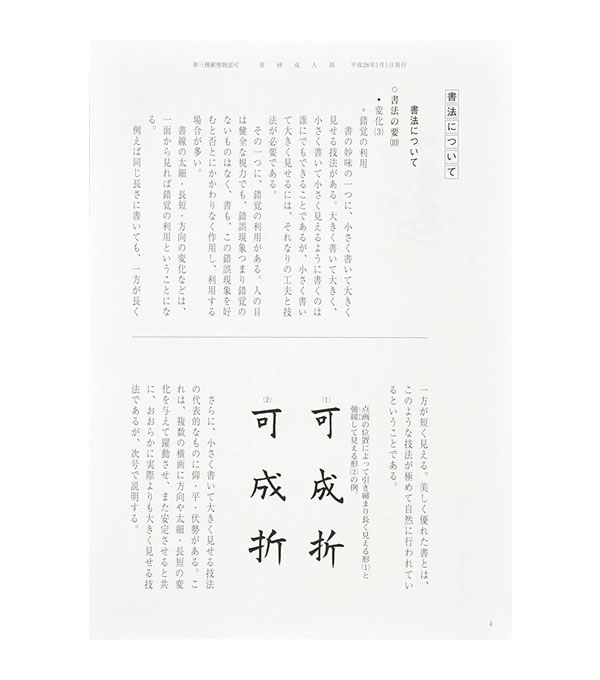 第三種郵便物認可　書 研 成 人 部　平成28年1月1日発行
書法について
書法について
○書法の要⑽
•変化⑶
○錯覚の利用
書の妙味の一つに、小さく書いて大きく
見せる技法がある。大きく書いて大きく、
小さく書いて小さく見えるように書くのは
誰にでもできることであるが、小さく書い
て大きく見せるには、それなりの工夫と技
法が必要である。
その一つに、錯覚の利用がある。人の目
は健全な視力でも、錯誤現象つまり錯覚の
ないものはなく、書も、この錯誤現象を好
むと否とにかかわりなく作用し、利用する
場合が多い。
書線の太細・長短・方向の変化などは、
一面から見れば錯覚の利用ということにな
る。
例えば同じ長さに書いても、一方が長く
一方が短く見える。美しく優れた書とは、
このような技法が極めて自然に行われてい
るということである。
点画の位置によって引き締まり長く見える形⑴と
弛緩して見える形⑵の例。
⑴可成折
⑵可成折
さらに、小さく書いて大きく見せる技法
の代表的なものに仰・平・伏勢がある。こ
れは、複数の横画に方向や太細・長短の変
化を与えて躍動させ、また安定させると共
に、おおらかに実際よりも大きく見せる技
法であるが、次号で説明する。
4